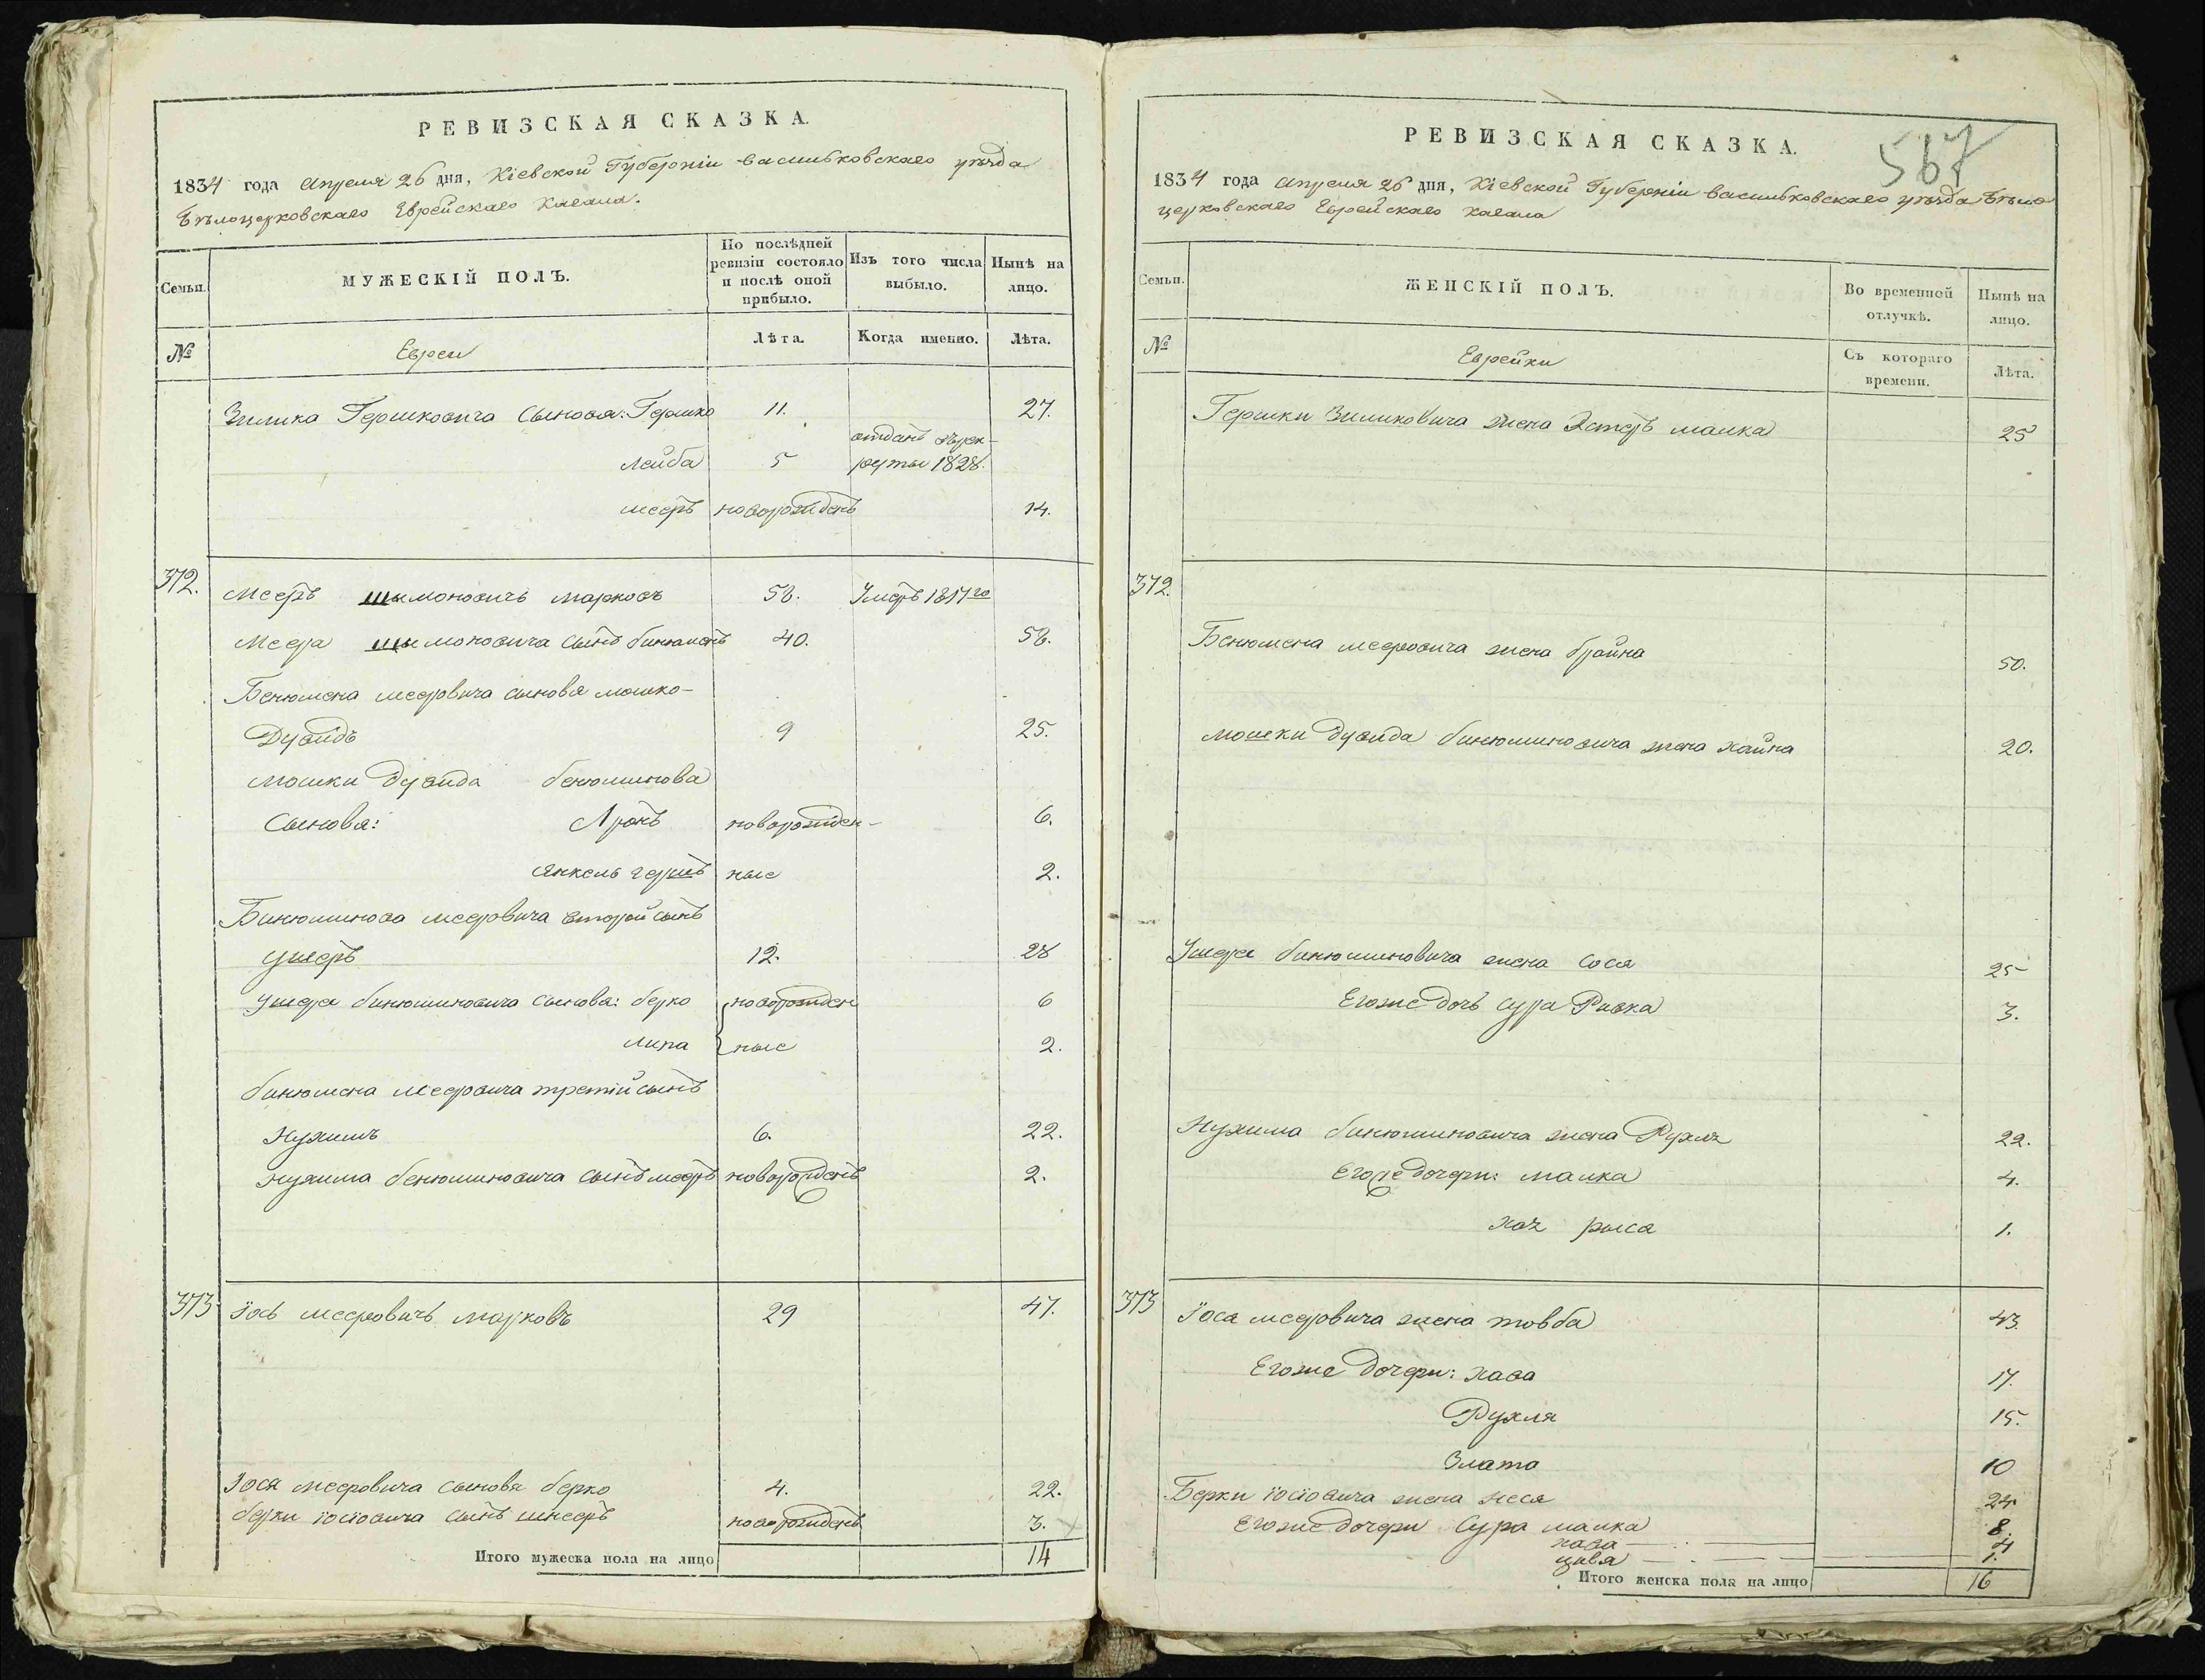 РЕВИЗСКАЯ СКАЗКА.
1834 года апреля 26 дня, Кіевской Губерніи васильковскаго уѣзда
Бѣлоцерковскаго Еврейскаго Кагала.
Семьи.
МУЖЕСКІЙ ПОЛЪ.
По послѣдней ревизіи состояло и послѣ оной прибыло.
Изъ того числа выбыло.
Нынѣ на лицо.
№
Евреи
Лѣта.
Когда именно.
Лѣта.
Зилика Гершковича Сыновя: Гершко 11. 27.
отданъ въ рек-
Лейба 5 руты 1828.
мееръ новорожденъ 14.
372. Мееръ шимоновичъ марковъ 58. Умеръ 1817 го
Меера шимоновича сынъ бинюменъ 40. 58.
Бенюмена мееровича сыновя мошко-
Дувидъ 9 25.
мошки дувида бенюминова
Сыновя: Аронъ новорожден- 6.
янкель гершъ ные 2.
Бинюминова мееровича второй сынъ
ушеръ 12. 28
ушера бинюминовича сыновя: берко новорожден 6
липа ные 2.
бинюмена мееровича третій сынъ
Нухимъ 6. 22.
нухима бенюминовича сынъ мееръ новорожденъ 2.
373 Іось мееровичъ марковъ 29 47.
Іося мееровича сыновя берко 4. 22.
берки іосіовича сынъ шнееръ новорожденъ 3.
Итого мужеска пола на лицо 14
567
РЕВИЗСКАЯ СКАЗКА.
1834 года апреля 26 дня, Кіевской Губерніи васильковскаго уѣзда Бѣло
церковскаго Еврейскаго кагала
Семьи.
ЖЕНСКІЙ ПОЛЪ.
Во временной отлучкѣ.
Нынѣ на лицо.
№
Еврейки
Съ котораго времени.
Лѣта.
Гершки Зиликовича жена Эстеръ малка 25
372.
Бенюмена мееровича жена брайна 50.
мошки дувида бинюминовича жена хайка 20.
Ушера бинюминовича жена сося 25
Егоже дочь сура Ривка 3.
Нухима бинюминовича жена Рухля 22.
Егоже дочери: малка 4.
хая рыса 1.
373 Іося мееровича жена товба 43.
Егоже дочери: хава 17.
Рухля 15.
Злата 10
Берки іосіовича жена неся 24
Егоже дочери Сура малка 8.
хава 4
цивя 1.
Итого женска пола на лицо 16